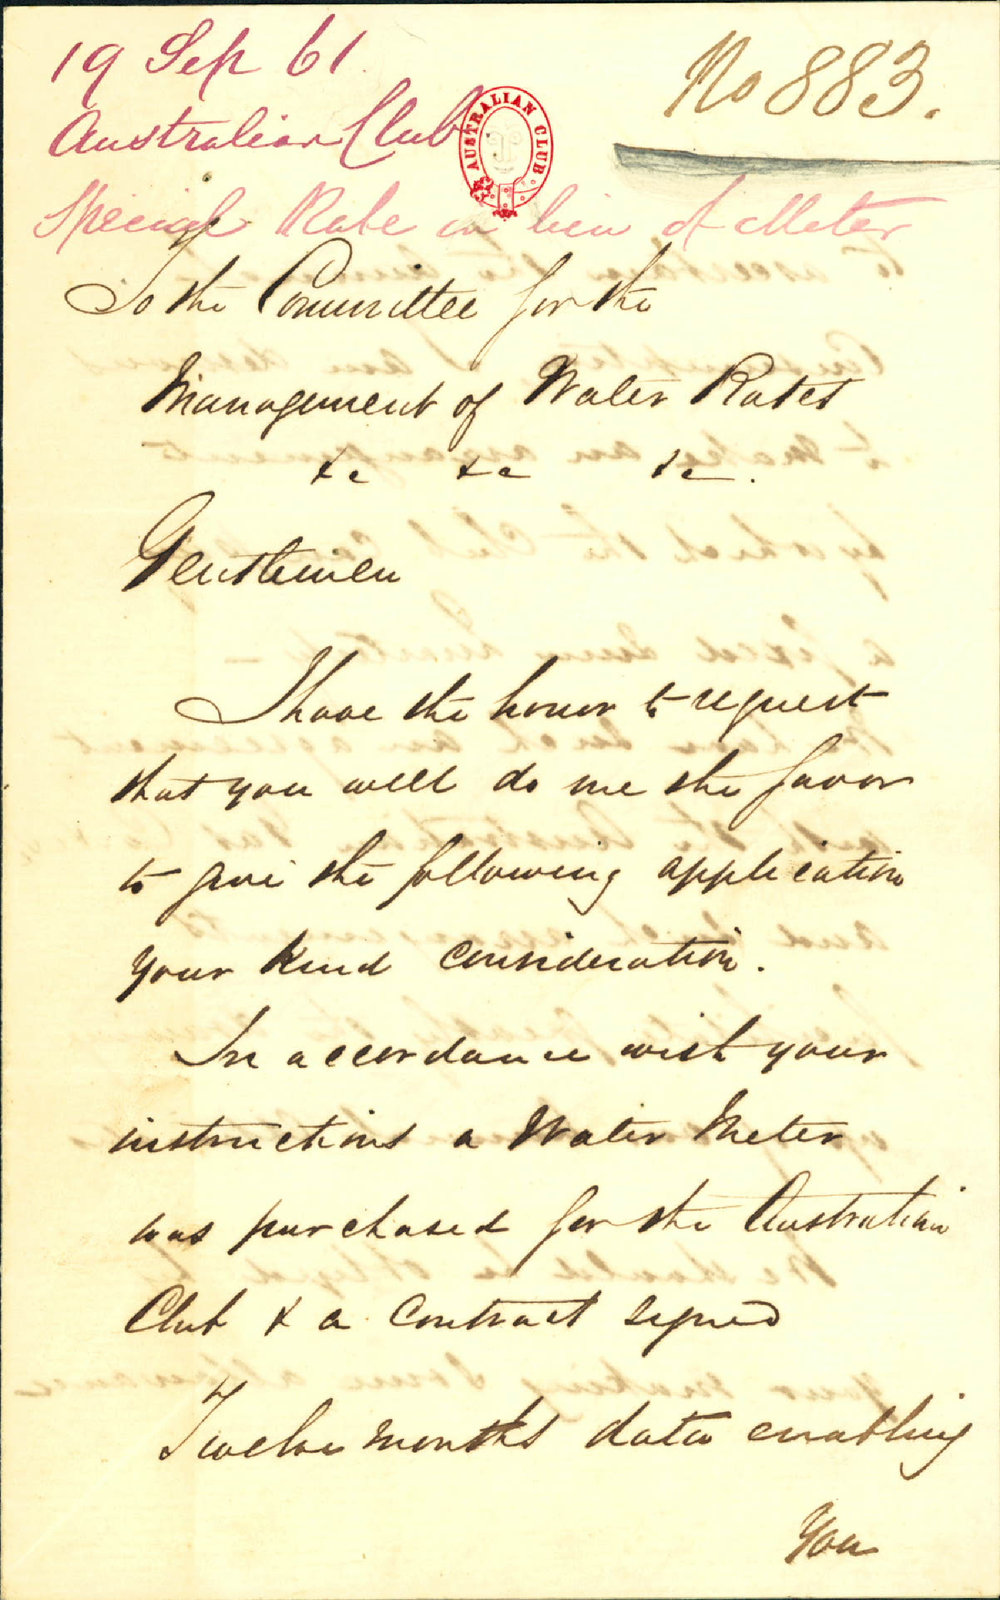 19 Sep 61.
No 883.
Australian Club
AUSTRALIAN CLUB
Special Rate in lieu of Meter
To the Committee for the
Management of Water Rates
&c &c &c.
Gentlemen
I have the honor to request
that you will do me the favor
to give the following application
your kind consideration.
In accordance with your
instructions a Water Meter
was purchased for the Australian
Club & a contract signed
Twelve months data enabling
You